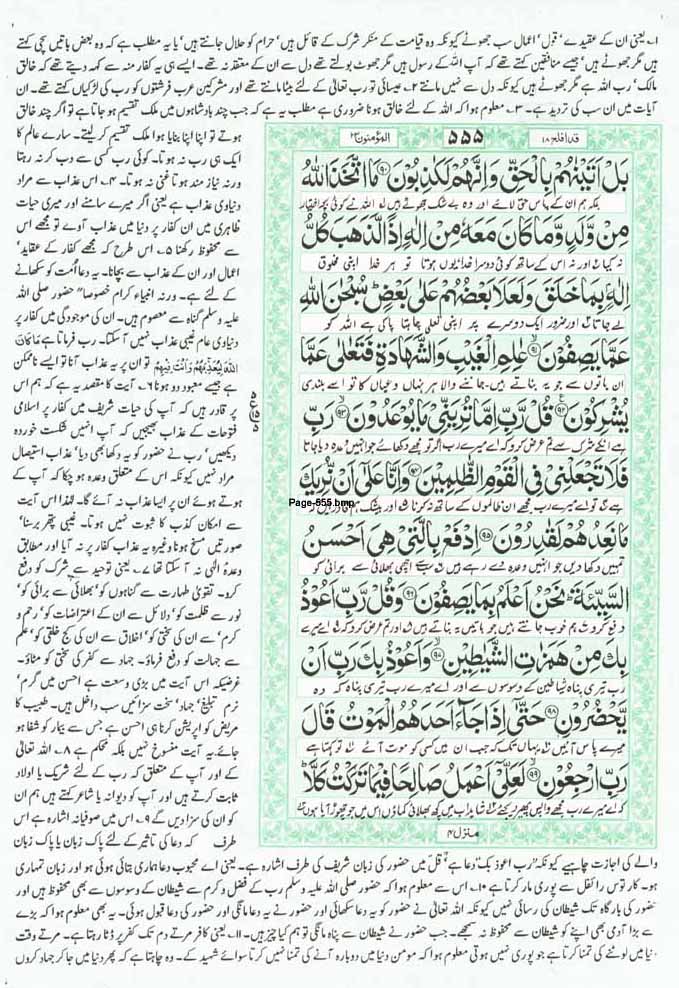 ۱۔ یعنی ان کے عقیدے، قول، اعمال سب جھوٹے کیونکہ وہ قیامت کے منکر شرک کے قائل ہیں، حرام کو حلال جانتے ہیں، یا یہ مطلب ہے کہ وہ بعض باتیں سچی کہتے
ہیں مگر جھوٹے ہیں، جیسے منافقین کہتے تھے کہ آپ اللہ کے رسول ہیں مگر جھوٹ بولتے تھے دل سے ان کے معتقد نہ تھے۔ ایسے ہی یہ کفار منہ سے کہہ دیتے تھے کہ خالق
مالک، رب اللہ ہے مگر جھوٹے ہیں کیونکہ دل سے نہیں مانتے ۲۔ عیسائی تو رب تعالیٰ کے لئے بیٹا مانتے تھے اور مشرکین عرب فرشتوں کو رب کی لڑکیاں کہتے تھے۔ ان
آیات میں ان سب کی تردید ہے۔ ۳۔ معلوم ہوا کہ اللہ کے لئے خالق ہونا ضروری ہے مطلب یہ ہے کہ جب چند بادشاہوں میں ملک تقسیم ہو جاتا ہے تو اگر چند خالق
ہوتے تو اپنا اپنا بنایا ہوا ملک تقسیم کر لیتے۔ سارے عالم کا
ایک ہی رب نہ ہوتا۔ کوئی رب کسی سے دب کر نہ رہتا
ورنہ نیاز مند ہوتا غنی نہ ہوتا۔ ۴۔ اس عذاب سے مراد
دنیاوی عذاب ہے یعنی اگر میرے سامنے اور میری حیات
ظاہری میں ان کفار پر دنیا میں عذاب آوے تو مجھے اس
سے محفوظ رکھنا ۵۔ اس طرح کہ مجھے کفار کے عقاید،
اعمال اور ان کے عذاب سے بچانا۔ یہ دعا امت کو سکھانے
کے لئے ہے۔ ورنہ انبیاء کرام خصوصاً حضور صلی اللہ
علیہ وسلم گناہ سے معصوم ہیں۔ ان کی موجودگی میں کفار پر
دنیاوی عام غیبی عذاب نہیں آ سکتا۔ رب فرماتا ہے مَاكَانَ
اللّٰهُ لِيُعَذِّبَهُمْ وَاَنْتَ فِيْهِمْ تو ان پر یہ عذاب آنا تو ایسے ناممکن
ہے جیسے دو معبود ہونا ۶۔ آیت کا مقصد یہ ہے کہ ہم اس
پر قادر ہیں کہ آپ کی حیات شریف میں کفار پر اسلامی
فتوحات کے عذاب بھیجیں کہ آپ انہیں شکست خوردہ
دیکھیں، رب نے حضور کو یہ دکھا بھی دیا، عذاب استیصال
مراد نہیں کیونکہ اس کے متعلق وعدہ ہو چکا کہ آپ کے
ہوتے ہوئے ان پر ایسا عذاب نہ آئے گا۔ لہذا اس آیت
سے امکان کذب کا ثبوت نہیں ہوتا۔ غیبی پتھر برسنا،
صورتیں مسخ ہونا وغیرہ یہ عذاب کفار پر نہ آیا اور مطابق
وعدہ الٰہی نہ آ سکتا تھا ۷۔ یعنی توحید سے شرک کو دفع
کرو۔ تقویٰ طہارت سے گناہوں کو، بھلائی سے برائی کو،
نور سے ظلمت کو، دلائل سے ان کے اعتراضات کو، رحم و
کرم سے ان کی سختی کو، اخلاق سے ان کی کج خلقی کو، علم
سے جہالت کو دفع فرماؤ۔ جہاد سے کفر کی سختی کو مٹاؤ۔
غرضیکہ اس آیت میں بڑی وسعت ہے احسن میں گرم،
نرم تبلیغ، جہاد، سخت سزائیں سب داخل ہیں۔ طبیب کا
مریض کو اپریشن کرنا ہی احسن ہے جس سے بیمار کو شفا ہو
جائے۔ یہ آیت منسوخ نہیں بلکہ محکم ہے ۸۔ اللہ تعالیٰ
کے اور آپ کے متعلق کہ رب کے لئے شریک یا اولاد
ثابت کرتے ہیں اور آپ کو دیوانہ یا شاعر کہتے ہیں ہم ان
کو ان کی سزا دیں گے ۹۔ اس میں صوفیانہ اشارہ ہے اس
طرف کہ دعا کی تاثیر کے لئے پاک زبان یا پاک زبان
قد افلح ۱۸
۵۵۵
المؤمنون ۲۳
بَلْ اَتَيْنٰهُمْ بِالْحَقِّ وَاِنَّهُمْ لَكٰذِبُوْنَ ﴿۹۰﴾ مَا اتَّخَذَ اللّٰهُ
بلکہ ہم ان کے پاس حق لائے اور وہ بے شک جھوٹے ہیں ۱ اللہ نے کوئی بچہ اختیار
مِنْ وَّلَدٍ وَّمَا كَانَ مَعَهٗ مِنْ اِلٰهٍ اِذًا لَّذَهَبَ كُلُّ
نہ کیا ۲ اور نہ اس کے ساتھ کوئی دوسرا خدا یوں ہوتا تو ہر خدا اپنی مخلوق
اِلٰهٍۭ بِمَا خَلَقَ وَلَعَلَا بَعْضُهُمْ عَلٰى بَعْضٍ سُبْحٰنَ اللّٰهِ
لے جاتا ۳ اور ضرور ایک دوسرے پر اپنی تعلی چاہتا پاکی ہے اللہ کو
عَمَّا يَصِفُوْنَ ﴿۹۱﴾ عٰلِمِ الْغَيْبِ وَالشَّهَادَةِ فَتَعٰلٰى عَمَّا
ان باتوں سے جو یہ بناتے ہیں۔ جاننے والا ہر نہاں و عیاں کا تو اسے بلندی
يُشْرِكُوْنَ ﴿۹۲﴾ قُلْ رَّبِّ اِمَّا تُرِيَنِّيْ مَا يُوْعَدُوْنَ ﴿۹۳﴾ رَبِّ
ہے انکے شرک سے تم عرض کرو کہ اے میرے رب اگر تو مجھے دکھائے جو انہیں وعدہ دیا جاتا
فَلَا تَجْعَلْنِيْ فِي الْقَوْمِ الظّٰلِمِيْنَ ﴿۹۴﴾ وَاِنَّا عَلٰٓى اَنْ نُّرِيَكَ
ہے ۴ تو اے میرے رب مجھے ان ظالموں کے ساتھ نہ کرنا ۵ اور بیشک ہم قادر ہیں کہ
Page-555.bmp
مَا نَعِدُهُمْ لَقٰدِرُوْنَ ﴿۹۵﴾ اِدْفَعْ بِالَّتِيْ هِيَ اَحْسَنُ
تمہیں دکھا دیں جو انہیں وعدہ دے رہے ہیں ۶ سب سے اچھی بھلائی سے برائی کو
السَّيِّئَةَ نَحْنُ اَعْلَمُ بِمَا يَصِفُوْنَ ﴿۹۶﴾ وَقُلْ رَّبِّ اَعُوْذُ
دفع کرو ۷ ہم خوب جانتے ہیں جو باتیں یہ بناتے ہیں ۸ اور تم عرض کرو کہ ۹ اے میرے
بِكَ مِنْ هَمَزٰتِ الشَّيٰطِيْنِ ﴿۹۷﴾ وَاَعُوْذُ بِكَ رَبِّ اَنْ
رب تیری پناہ شیاطین کے وسوسوں سے اور اے میرے رب تیری پناہ کہ وہ
يَّحْضُرُوْنِ ﴿۹۸﴾ حَتّٰٓى اِذَا جَآءَ اَحَدَهُمُ الْمَوْتُ قَالَ
میرے پاس آئیں ۱۰ یہاں تک کہ جب ان میں کسی کو موت آئے ۱۱ تو کہتا ہے
رَبِّ ارْجِعُوْنِ ﴿۹۹﴾ لَعَلِّيْٓ اَعْمَلُ صَالِحًا فِيْمَا تَرَكْتُ كَلَّا
کہ اے میرے رب مجھے واپس پھیر دیجئے شاید اب میں کچھ بھلائی کماؤں اس میں جو چھوڑ آیا ہوں
منزل ۴
والے کی اجازت چاہیے کیونکہ رب اعوذ بک دعا ہے، قل میں حضور کی زبان شریف کی طرف اشارہ ہے۔ یعنی اے محبوب دعا ہماری بتائی ہوئی ہو اور زبان تمہاری
ہو۔ کارتوس رائفل سے پوری مار کرتا ہے ۱۰۔ اس سے معلوم ہوا کہ حضور صلی اللہ علیہ وسلم رب کے فضل و کرم سے شیطان کے وسوسوں سے بھی محفوظ ہیں اور
حضور کی بارگاہ تک شیطان کی رسائی نہیں کیونکہ اللہ تعالیٰ نے حضور کو یہ دعا سکھائی اور حضور نے یہ دعا مانگی اور حضور کی دعا قبول ہوئی۔ یہ بھی معلوم ہوا کہ بڑے
سے بڑا آدمی بھی اپنے کو شیطان سے محفوظ نہ سمجھے۔ جب حضور نے شیطان سے پناہ مانگی تو ہم کیا چیز ہیں۔ ۱۱۔ یعنی کافر مرتے دم تک کفر پر ڈٹا رہتا ہے۔ مرتے وقت
دنیا میں لوٹنے کی تمنا کرتا ہے جو پوری نہیں ہوتی معلوم ہوا کہ مومن دنیا میں دوبارہ آنے کی تمنا نہیں کرتا سوائے شہید کے۔ وہ چاہتا ہے کہ پھر دنیا میں جا کر جہاد کروں